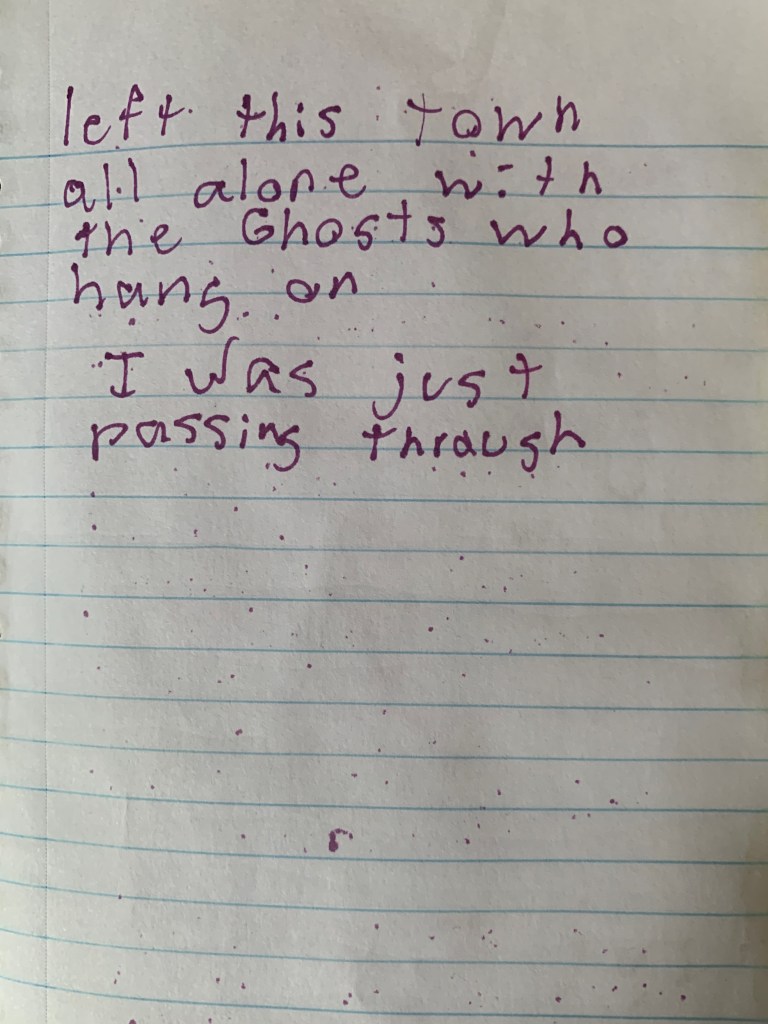 left this town
all alone with
the Ghosts who
hang on
I was just
passing through